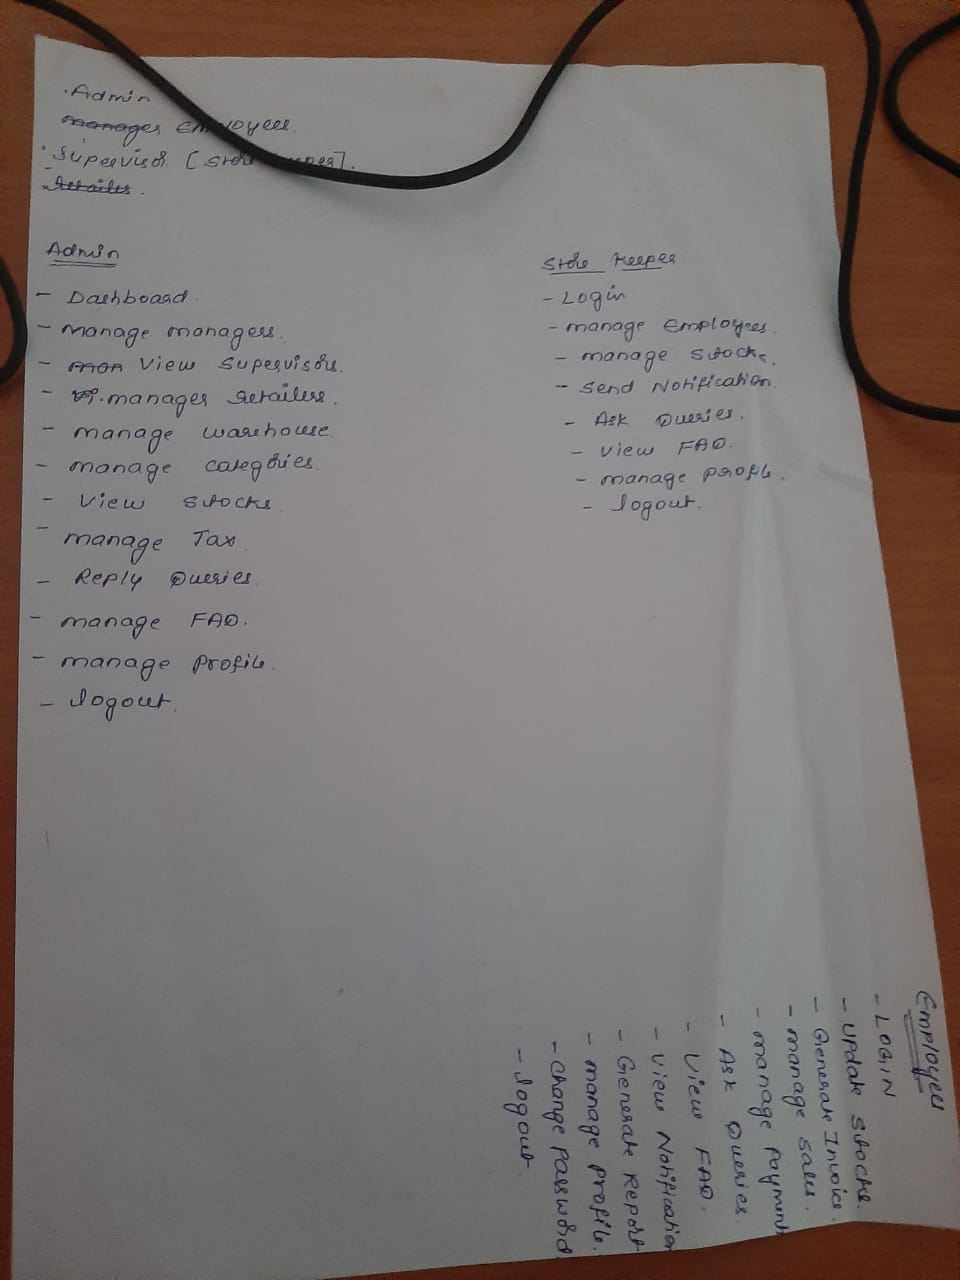 · Admin
manages Employees.
· Supervisor [Store
Retailer.
Admin
- Dashboard.
- manage managers.
- man View Supervisors.
- Vi. manages Retailers.
- manage warehouse.
- manage categories.
- View Stocks
- manage Tax.
- Reply Queries.
- manage FAQ.
- manage profile.
- logout.
Store Keeper
- Login
- manage Employees.
- manage Stocks.
- Send Notification.
- Ask Queries.
- View FAQ.
- manage profile.
- logout.
Employees
- LOGIN
- Update Stocks.
- Generate Invoice.
- manage Sales.
- manage Payment
- Ask Queries.
- View FAQ.
- View Notification
- Generate Report
- manage profile.
- Change Password
- logout.